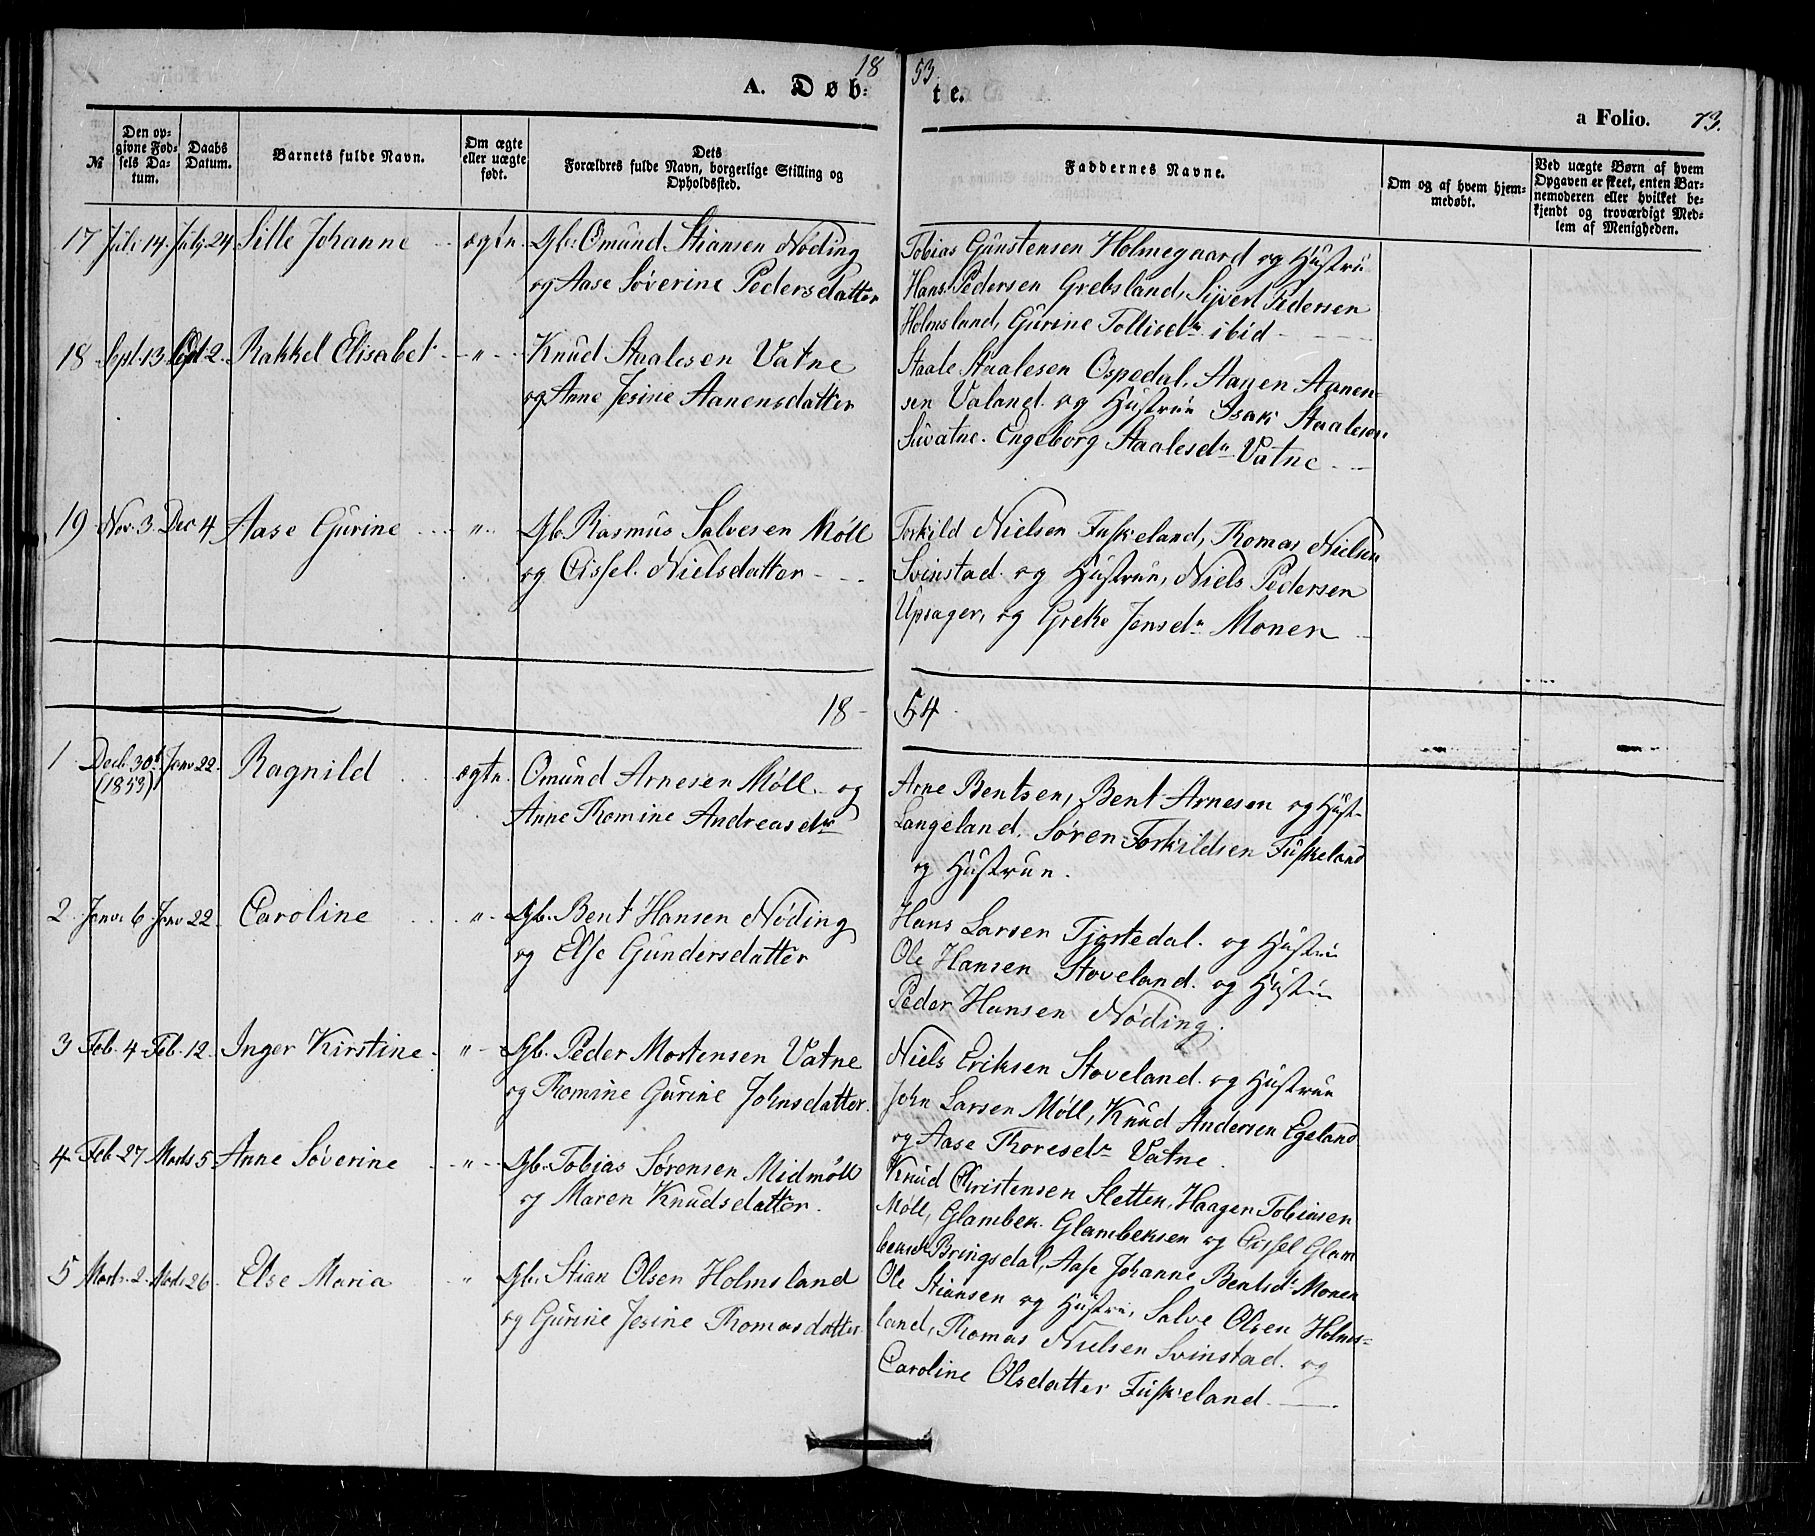 18 53
A. Døb: te.
a Folio. 73.
№
Den opgivne Fødsels Datum.
Daabs Datum.
Barnets fulde Navn.
Om ægte eller uægte født.
Dets Forældres fulde Navn, borgerlige Stilling og Opholdssted.
Faddernes Navne.
Om og af hvem hjemmedøbt.
Ved uægte Børn af hvem Opgaven er skeet, enten Barnemoderen eller hvilket bekjendt og troværdigt Medlem af Menigheden.
17 Juli 14. Juli 24 Sille Johanne ægtn. Gb. Omund Stiansen Nøding
og Aase Søverine Pedersdatter
Tobias Gunstensen Holmegaard og Hustru
Hans Pedersen Grebsland, Sijvert Pedersen
Holmsland, Gurine Tollisdr ibid
18 Spt. 13 Oct 2. Rakkel Elisabet " Knud Staalesen Vatne
og Anne Jesine Aanensdatter
Staale Staalesen Ospedal, Aanen Aanen-
sen Valand og Hustrue Isak Staalesen
Suvatne. Engeborg Staalesdr Vatne
19 Nov. 3. Dec 4 Aase Gurine " Gb. Rasmus Salvesen Møll
og Cissel Nielsdatter
Torkild Nielsen Fuskeland, Thomas Nielsen
Svinstad og Hustrue, Niels Pedersen
Upsager, og Grethe Jensdr Monen
18 - 54
1 Decb. 30t (1853) Janv 22. Ragnild ægtn. Omund Arnesen Møll og
Anne Thomine Andreasdr
Arne Bentsen, Bent Arnesen og Hust-
Langeland, Søren Torkildsen Fuskeland
og Hustrun.
2 Janv. 6 Janv 22. Caroline " Gb. Bent Hansen Nøding
og Else Gundersdatter
Hans Larsen Tjostedal og Hustru
Ole Hansen Stoveland og Hustru
Peder Hansen Nøding.
3 Feb. 4 Feb. 12. Inger Kirstine " Gb. Peder Mortensen Vatne
og Thomine Gurine Johnsdatter.
Niels Eriksen Stoveland og Hustrun
John Larsen Møll, Knud Andersen Egeland
og Aase Thoresdr Vatne.
4 Feb 27 Marts 5 Anne Søverine " Gb. Tobias Sørensen Midmøll
og Maren Knudsdatter.
Knud Christensen Sletten, Haagen Tobiasen
Møll, Glambek Glambeksen og Cissel Glam
beksdr Bringsdal, Aase Johanne Bentsdr Monen
5 Marts 2 Marts 26 Else Maria " Gb. Stian Olsen Holmsland
og Gurine Jesine Thomasdatter
Ole Stiansen og Hustru, Salve Olsen Holms-
land, Thomas Nielsen Svinstad og
Caroline Olsdatter Fuskeland